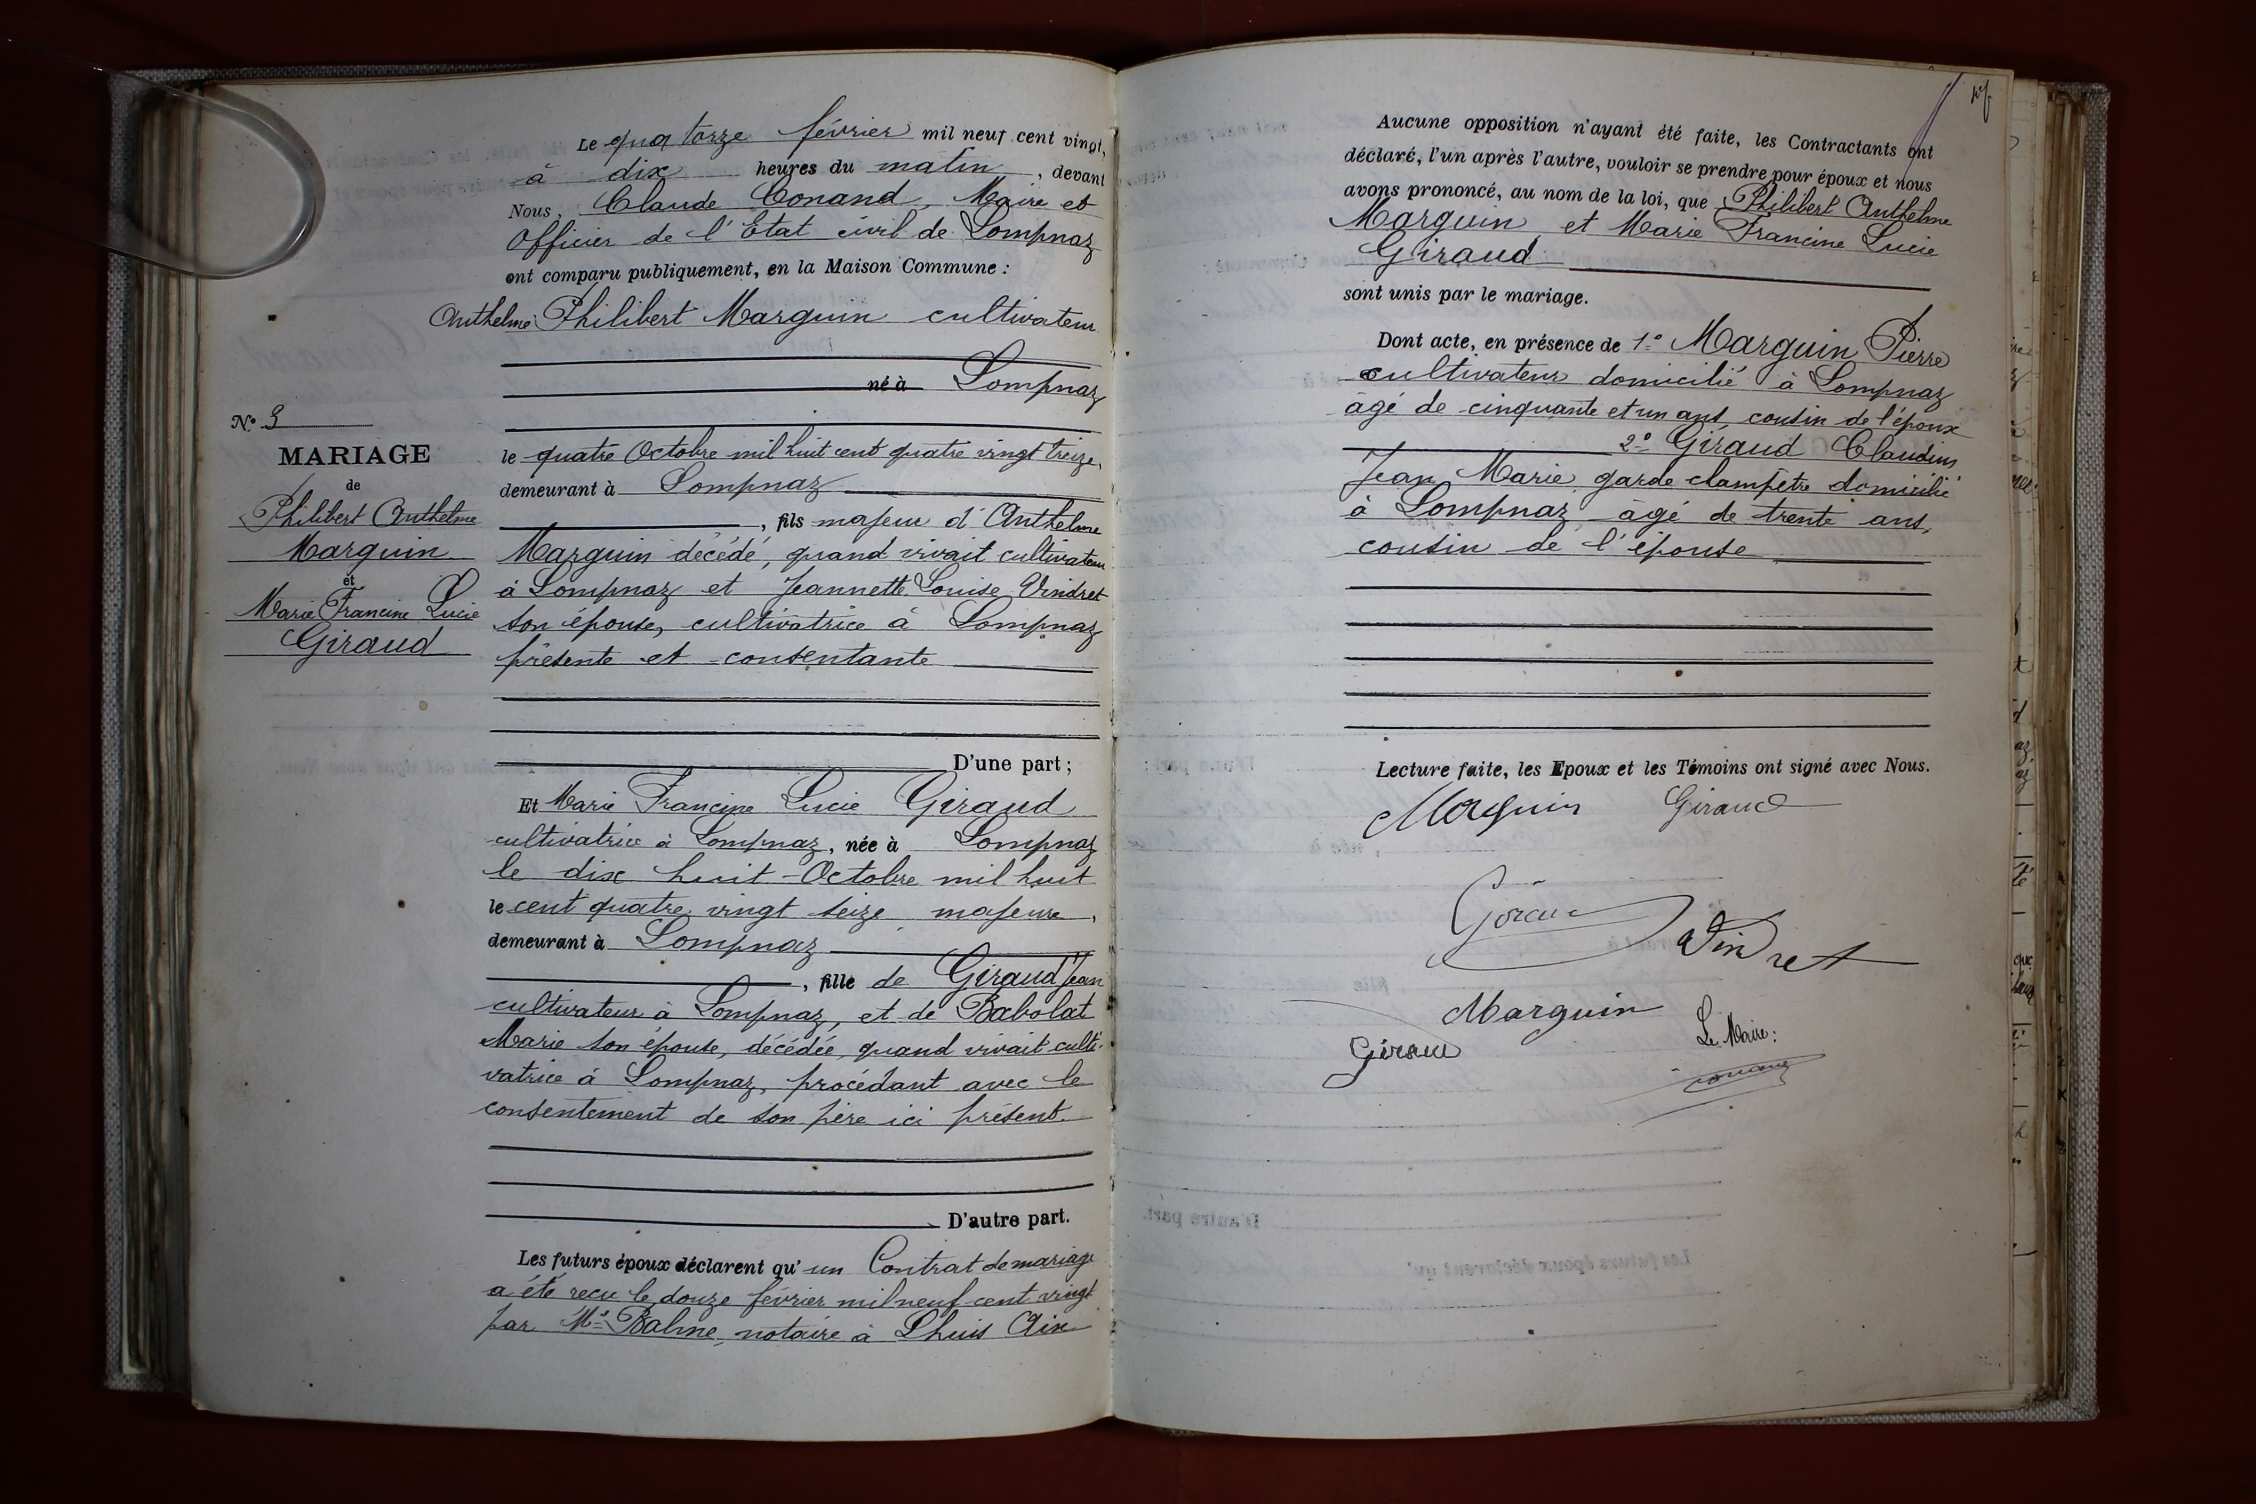 Le quatorze février mil neuf cent vingt,
à dix heures du matin, devant
Nous, Claude Conand, Maire et
Officier de l'Etat civil de Lompnaz
ont comparu publiquement, en la Maison Commune :
Anthelme Philibert Marguin cultivateur
né à Lompnaz
le quatre Octobre mil huit cent quatre vingt treize,
demeurant à Lompnaz
, fils majeur d'Anthelme
Marguin décédé, quand vivait cultivateur
à Lompnaz et Jeannette Louise Vindret
son épouse, cultivatrice à Lompnaz
présente et consentante
D'une part ;
Et Marie Francine Lucie Giraud
cultivatrice à Lompnaz, née à Lompnaz
le dix huit Octobre mil huit
le cent quatre vingt seize majeure,
demeurant à Lompnaz
, fille de Giraud Jean
cultivateur à Lompnaz, et de Babolat
Marie son épouse, décédée, quand vivait culti-
vatrice à Lompnaz, procédant avec le
consentement de son père ici présent.
D'autre part.
Les futurs époux déclarent qu'un Contrat de mariage
a été reçu le douze février mil neuf cent vingt
par Me Balme, notaire à Lhuis Ain
N° 3
MARIAGE
de
Philibert Anthelme
Marguin
et
Marie Francine Lucie
Giraud
Aucune opposition n'ayant été faite, les Contractants ont
déclaré, l'un après l'autre, vouloir se prendre pour époux et nous
avons prononcé, au nom de la loi, que Philibert Anthelme
Marguin et Marie Francine Lucie
Giraud
sont unis par le mariage.
Dont acte, en présence de 1° Marguin Pierre
cultivateur domicilié à Lompnaz
âgé de cinquante et un ans, cousin de l'époux
2° Giraud Claudius
Jean Marie, garde-champêtre domicilié
à Lompnaz, âgé de trente ans,
cousin de l'épouse
Lecture faite, les Epoux et les Témoins ont signé avec Nous.
Marguin Giraud
Vindret
Marguin
Le Maire :
Giraud
Conand